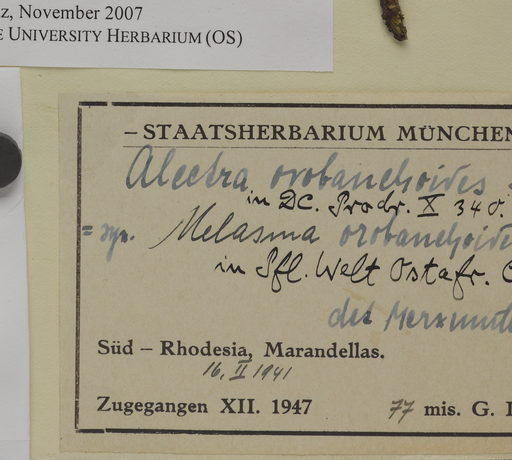 z, November 2007
E UNIVERSITY HERBARIUM (OS)
– STAATSHERBARIUM MÜNCHEN
Alectra orobanchoides
in DC. Prodr. X 340.
= syn. Melasma orobanchoide
in Pfl. Welt Ostafr. C
det Merxmüll
Süd – Rhodesia, Marandellas.
16. II 1941
Zugegangen XII. 1947 77 mis. G.